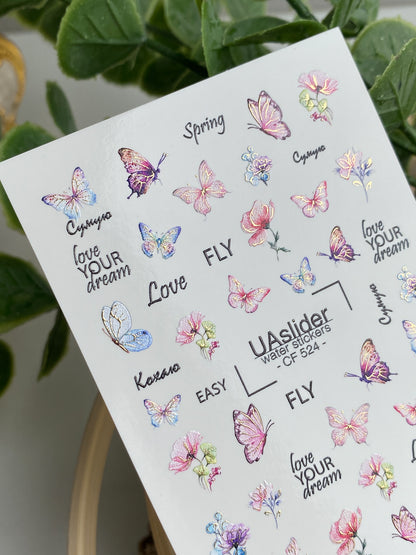 Spring
Сумую
Сумую
love
YOUR
dream
FLY
love
YOUR
dream
Love
Сумую
UAslider
wafer stickers
- CF 524 -
Кохаю
EASY
FLY
love
YOUR
dream